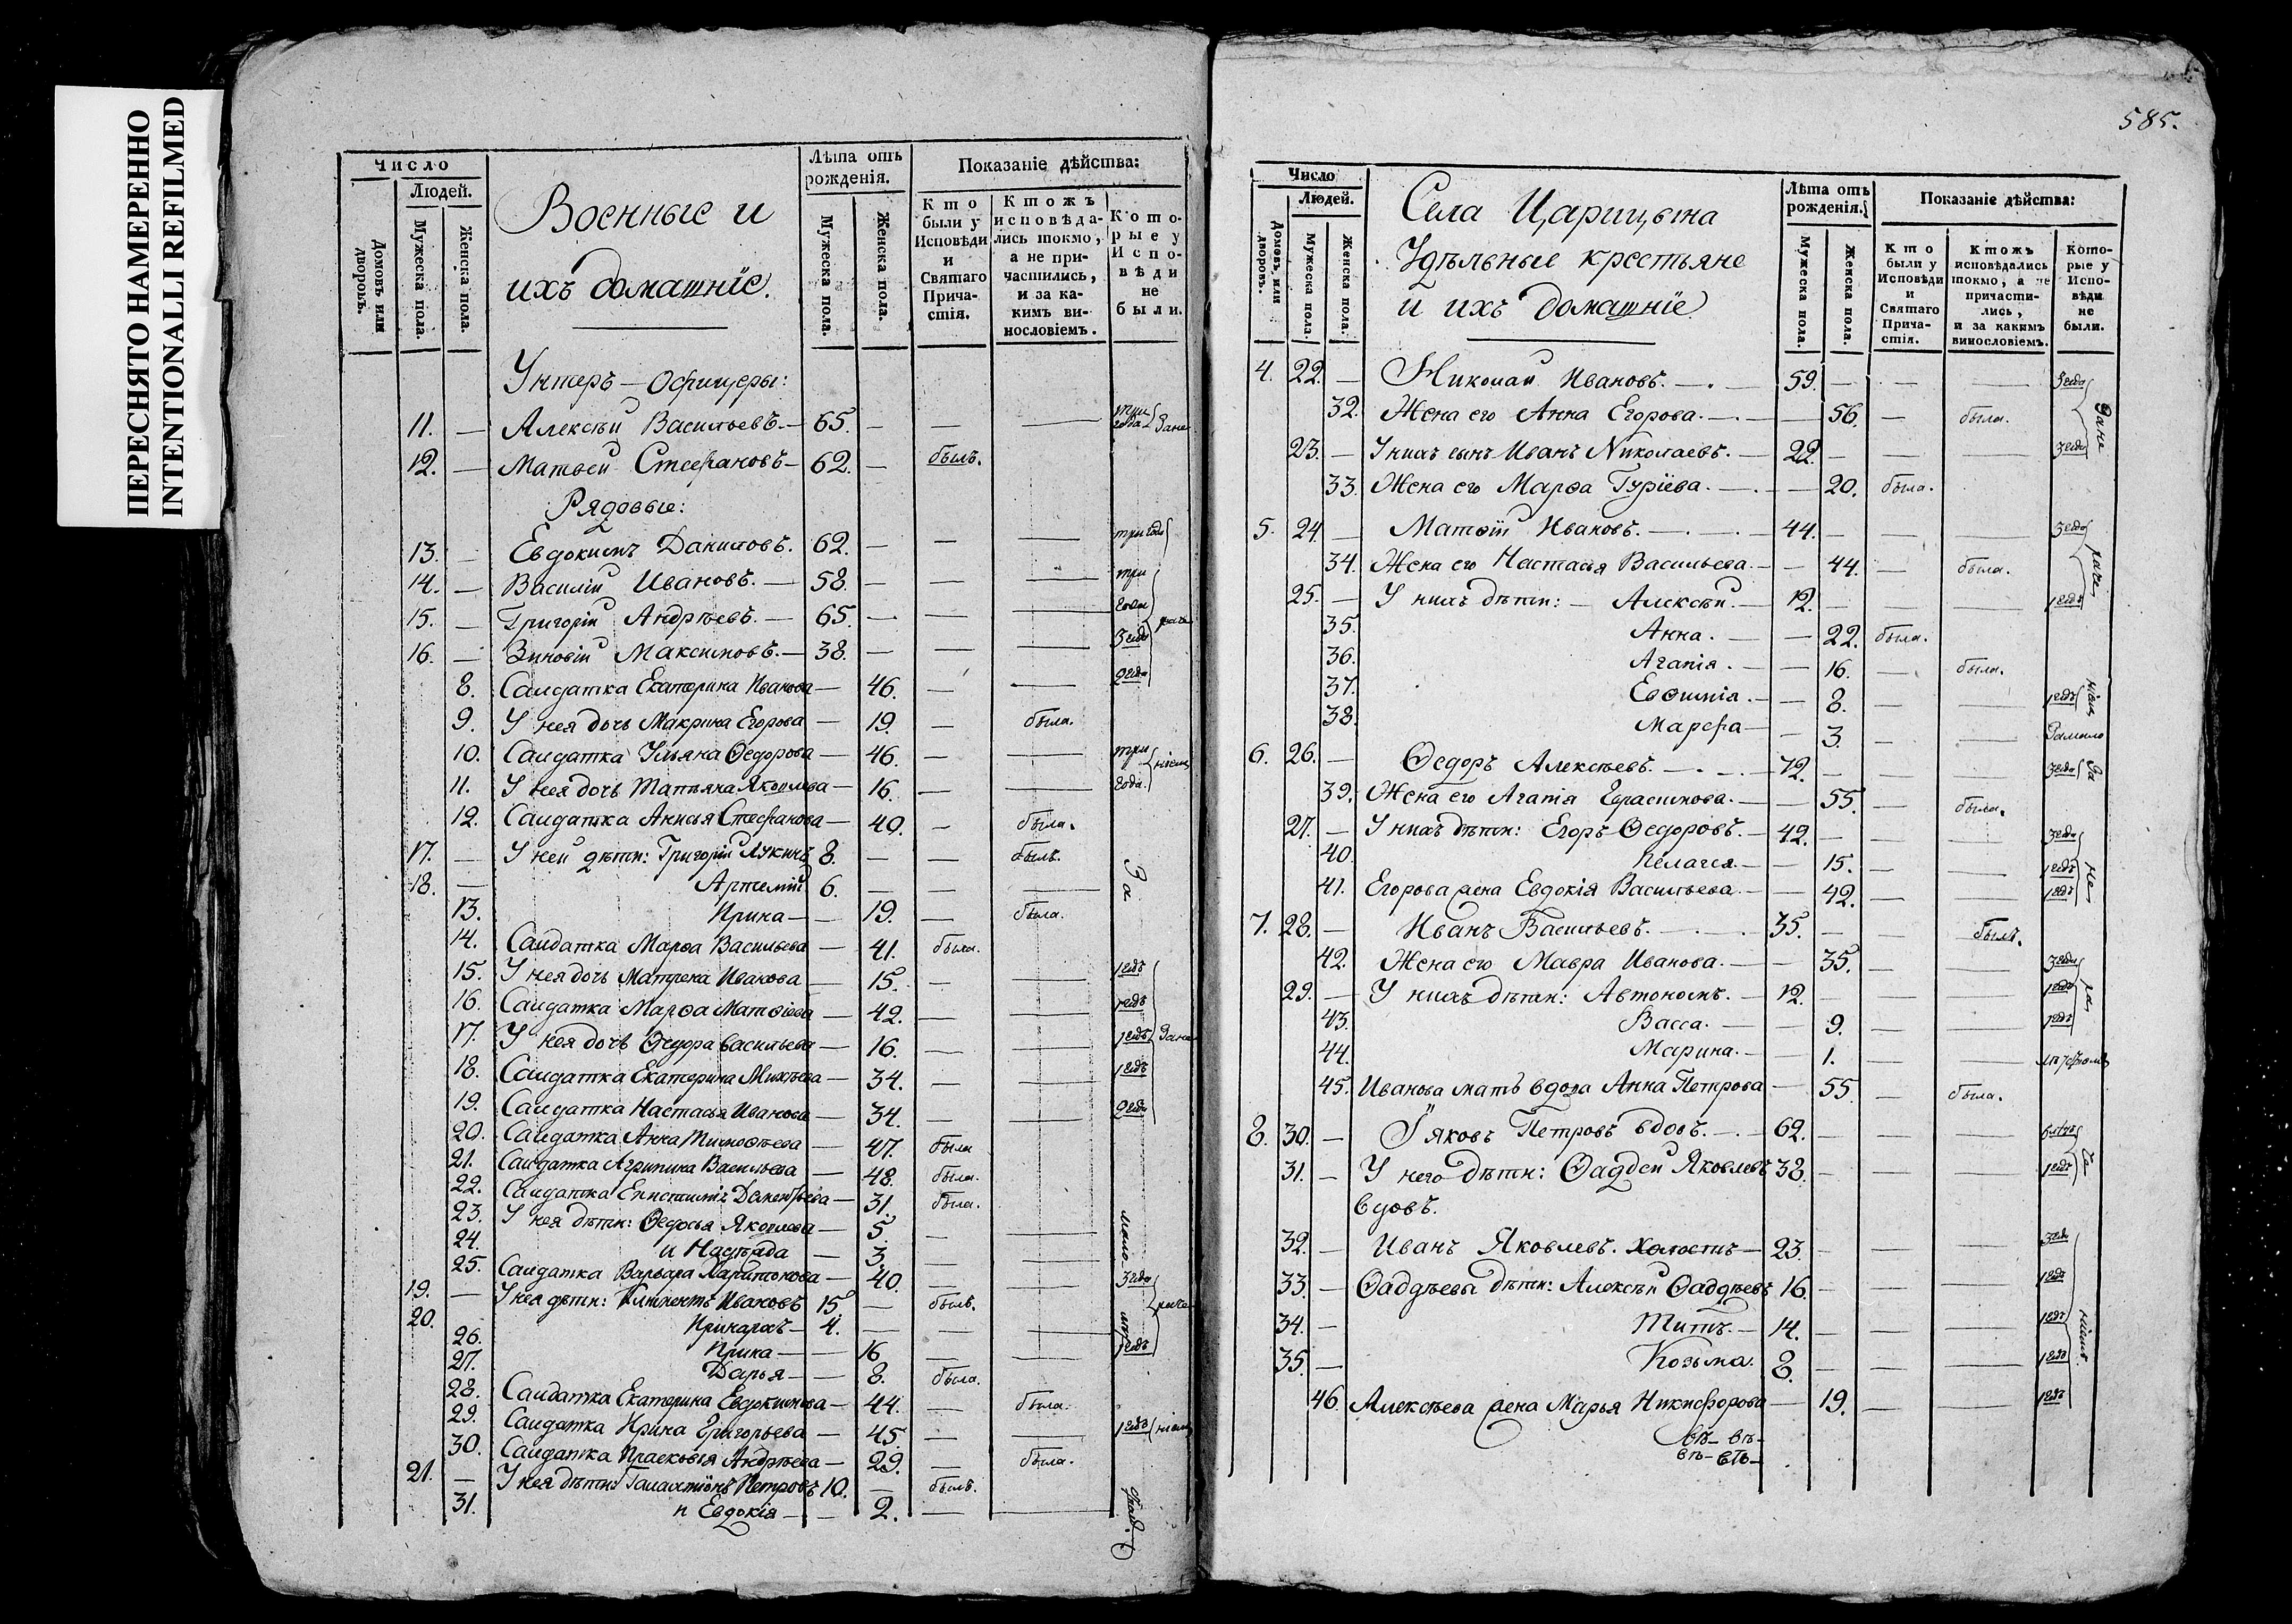 ПЕРЕСНЯТО НАМЕРЕННО
INTENTIONALLI REFILMED
Число
Людей.
Домовъ или дворовъ.
Мужеска пола.
Женска пола.
Военные и
ихъ домашніе.
Лѣта отъ рожденія.
Мужеска пола.
Женска пола.
Показаніе дѣйства:
Кто были у Исповѣди и Святаго Причастія.
Ктожъ исповѣдались токмо, а не причастились, и за какимъ винословіемъ.
Которые у Исповѣди не были.
Унтеръ-Офицеры:
11. — Алексѣй Васильевъ. — 65. — — — три года
12. — Матвей Стефановъ — 62. — былъ.
Рядовые:
13. — Евдокимъ Даниловъ. 62. — — — три года
14. — Василій Ивановъ. — 58. — — — три
15. — Григорій Андрѣевъ. — 65. — — —
16. — Зиновій Максимовъ. — 38. — — —
8. Салдатка Екатерина Иванова — 46. — —
9. У нея дочь Макрина Егорова — 19. — была.
10. Салдатка Ульяна Ѳедорова — 46. — — три
11. У нея дочь Татьяна Яковлева — 16. — — года.
12. Салдатка Анисья Стефанова — 40. — была.
17. — У ней дѣти: Григорій Лукинъ 8. — — былъ.
18. — Артемій 6. — — — За
13. Ирина — — 19. — была.
14. Салдатка Марѳа Васильева — 41. была.
15. У нея дочь Матрена Иванова — 15. — — 1 годъ
16. Салдатка Марѳа Матѳіева — 42. — — 1 годъ
17. У нея дочь Ѳедора Васильева — 16. — — 1 годъ
18. Салдатка Екатерина Михѣева — 34. — — 1 годъ
19. Салдатка Настасья Иванова — 34. — —
20. Салдатка Анна Тимоѳѣева — 47. была
21. Салдатка Агрипина Васильева — 48. была.
22. Салдатка — 31. была.
23. У нея дѣти: Ѳедосья Яковлева — 5. — —
24. и — 3. — —
25. Салдатка Варвара Харитонова — 40. — —
19. — У нея дѣти: Климентъ Ивановъ 15. — былъ.
20. Иринархъ — 4. — — —
26. Ирина — — 16 — —
27. Дарья — — 8. была.
28. Салдатка Екатерина Евдокимова — 44. — была.
29. Салдатка Ирина Григорьева — 45. — — 1 годъ
30. Салдатка Прасковья Андрѣева — 29. — была.
21. — У нея дѣти: Галактіонъ Петровъ 10. — былъ.
31. и Евдокія — — 2. — —
585.
Число
Людей.
Домовъ, или дворовъ.
Мужеска пола
Женска пола.
Села Царицына
Удѣльные крестьяне
и ихъ домашніе
Лѣта отъ рожденія.
Мужеска пола.
Женска пола.
Показаніе дѣйства:
Кто были у Исповѣди и Святаго Причастія.
Ктожъ исповѣдались токмо, а не причастились, и за какимъ винословіемъ.
Которые у Исповѣди не были.
4. 22. — Николай Ивановъ. — 59. — — — 3 года
32. Жена его Анна Егорова. — — 56. — была.
23. — У нихъ сынъ Иванъ Николаевъ. — 22. — — — 3 года
33. Жена его Марѳа Гуріева. — — 20. была.
5. 24. — Матѳій Ивановъ. — 44. — — — 3 года
34. Жена его Настасья Васильева. — — 44. — была.
25. — У нихъ дѣти: — Алексѣй. — 12. — — 1 годъ
35. Анна. — — 22. была.
36. Агапія. — — 16. — была.
37. Евѳимія. — — 8. — — 1 годъ
38. Марфа — — 3. — — За мало
6. 26. — Ѳедоръ Алексѣевъ. — 72. — — — 3 года
39. Жена его Агапія Герасимова. — — 55. — была.
27. — У нихъ дѣти: Егоръ Ѳедоровъ. — 42. — — — 3 года
40. Пелагея. — — 15. — — 1 годъ
41. Егорова жена Евдокія Васильева. — — 42. — — 1 годъ
7. 28. — Иванъ Васильевъ. — 35. — — былъ.
42. Жена его Мавра Иванова. — — 35. — — 3 года
29. — У нихъ дѣти: Автономъ. — 12. — — — 1 годъ
43. Васса. — — 9. — — 1 годъ
44. Марина. — — 1. — —
45. Иванова мать вдова Анна Петрова — 55. — была.
8. 30. — Яковъ Петровъ вдовъ. — 62. — — —
31. — У него дѣти: Ѳаддей Яковлевъ 38. — — — 1 годъ
вдовъ.
32. — Иванъ Яковлевъ. холостъ — 23. — — — 3 года
33. — Ѳаддѣевы дѣти: Алексѣй Ѳаддѣевъ 16. — — — 1 годъ
34. — Титъ. — 14. — — — 1 годъ
35. — Козьма. 8. — — — 1 годъ
46. Алексѣева жена Марья Никифорова — 19. — — 1 годъ